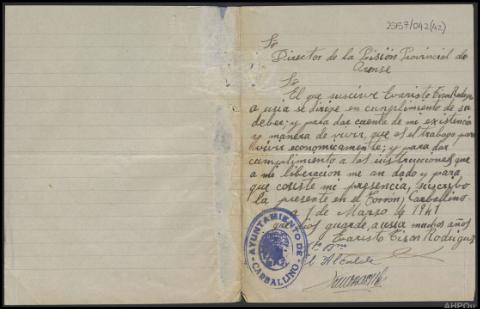 2957/042(42)
Sr
Director de la Prisión Provincial de
Orense
Sr
El que suscrive Evaristo Cisca Rodrig
a usia se dirije en cumplimiento de su
deber; y para dar cuenta de mi existencia
y manera de vivir, que es el trabajo para
vivir economicamente; y para dar
cumplimiento a las instrucciones, que
a mi liberacion me an dado y para
que coste mi presencia, suscribo
la presente en el (Carballino
a 1 de Marzo de 1941
que Dios guarde a usia muchos años
Evaristo Rodriguez
El Alcalde
AYUNTAMIENTO DE
CARBALLINO
AHPOu